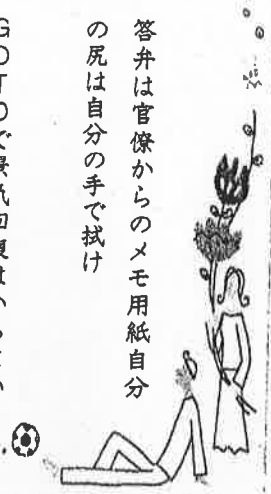 答弁は官僚からのメモ用紙自分
の尻は自分の手で拭け
GOTOで景気回復は